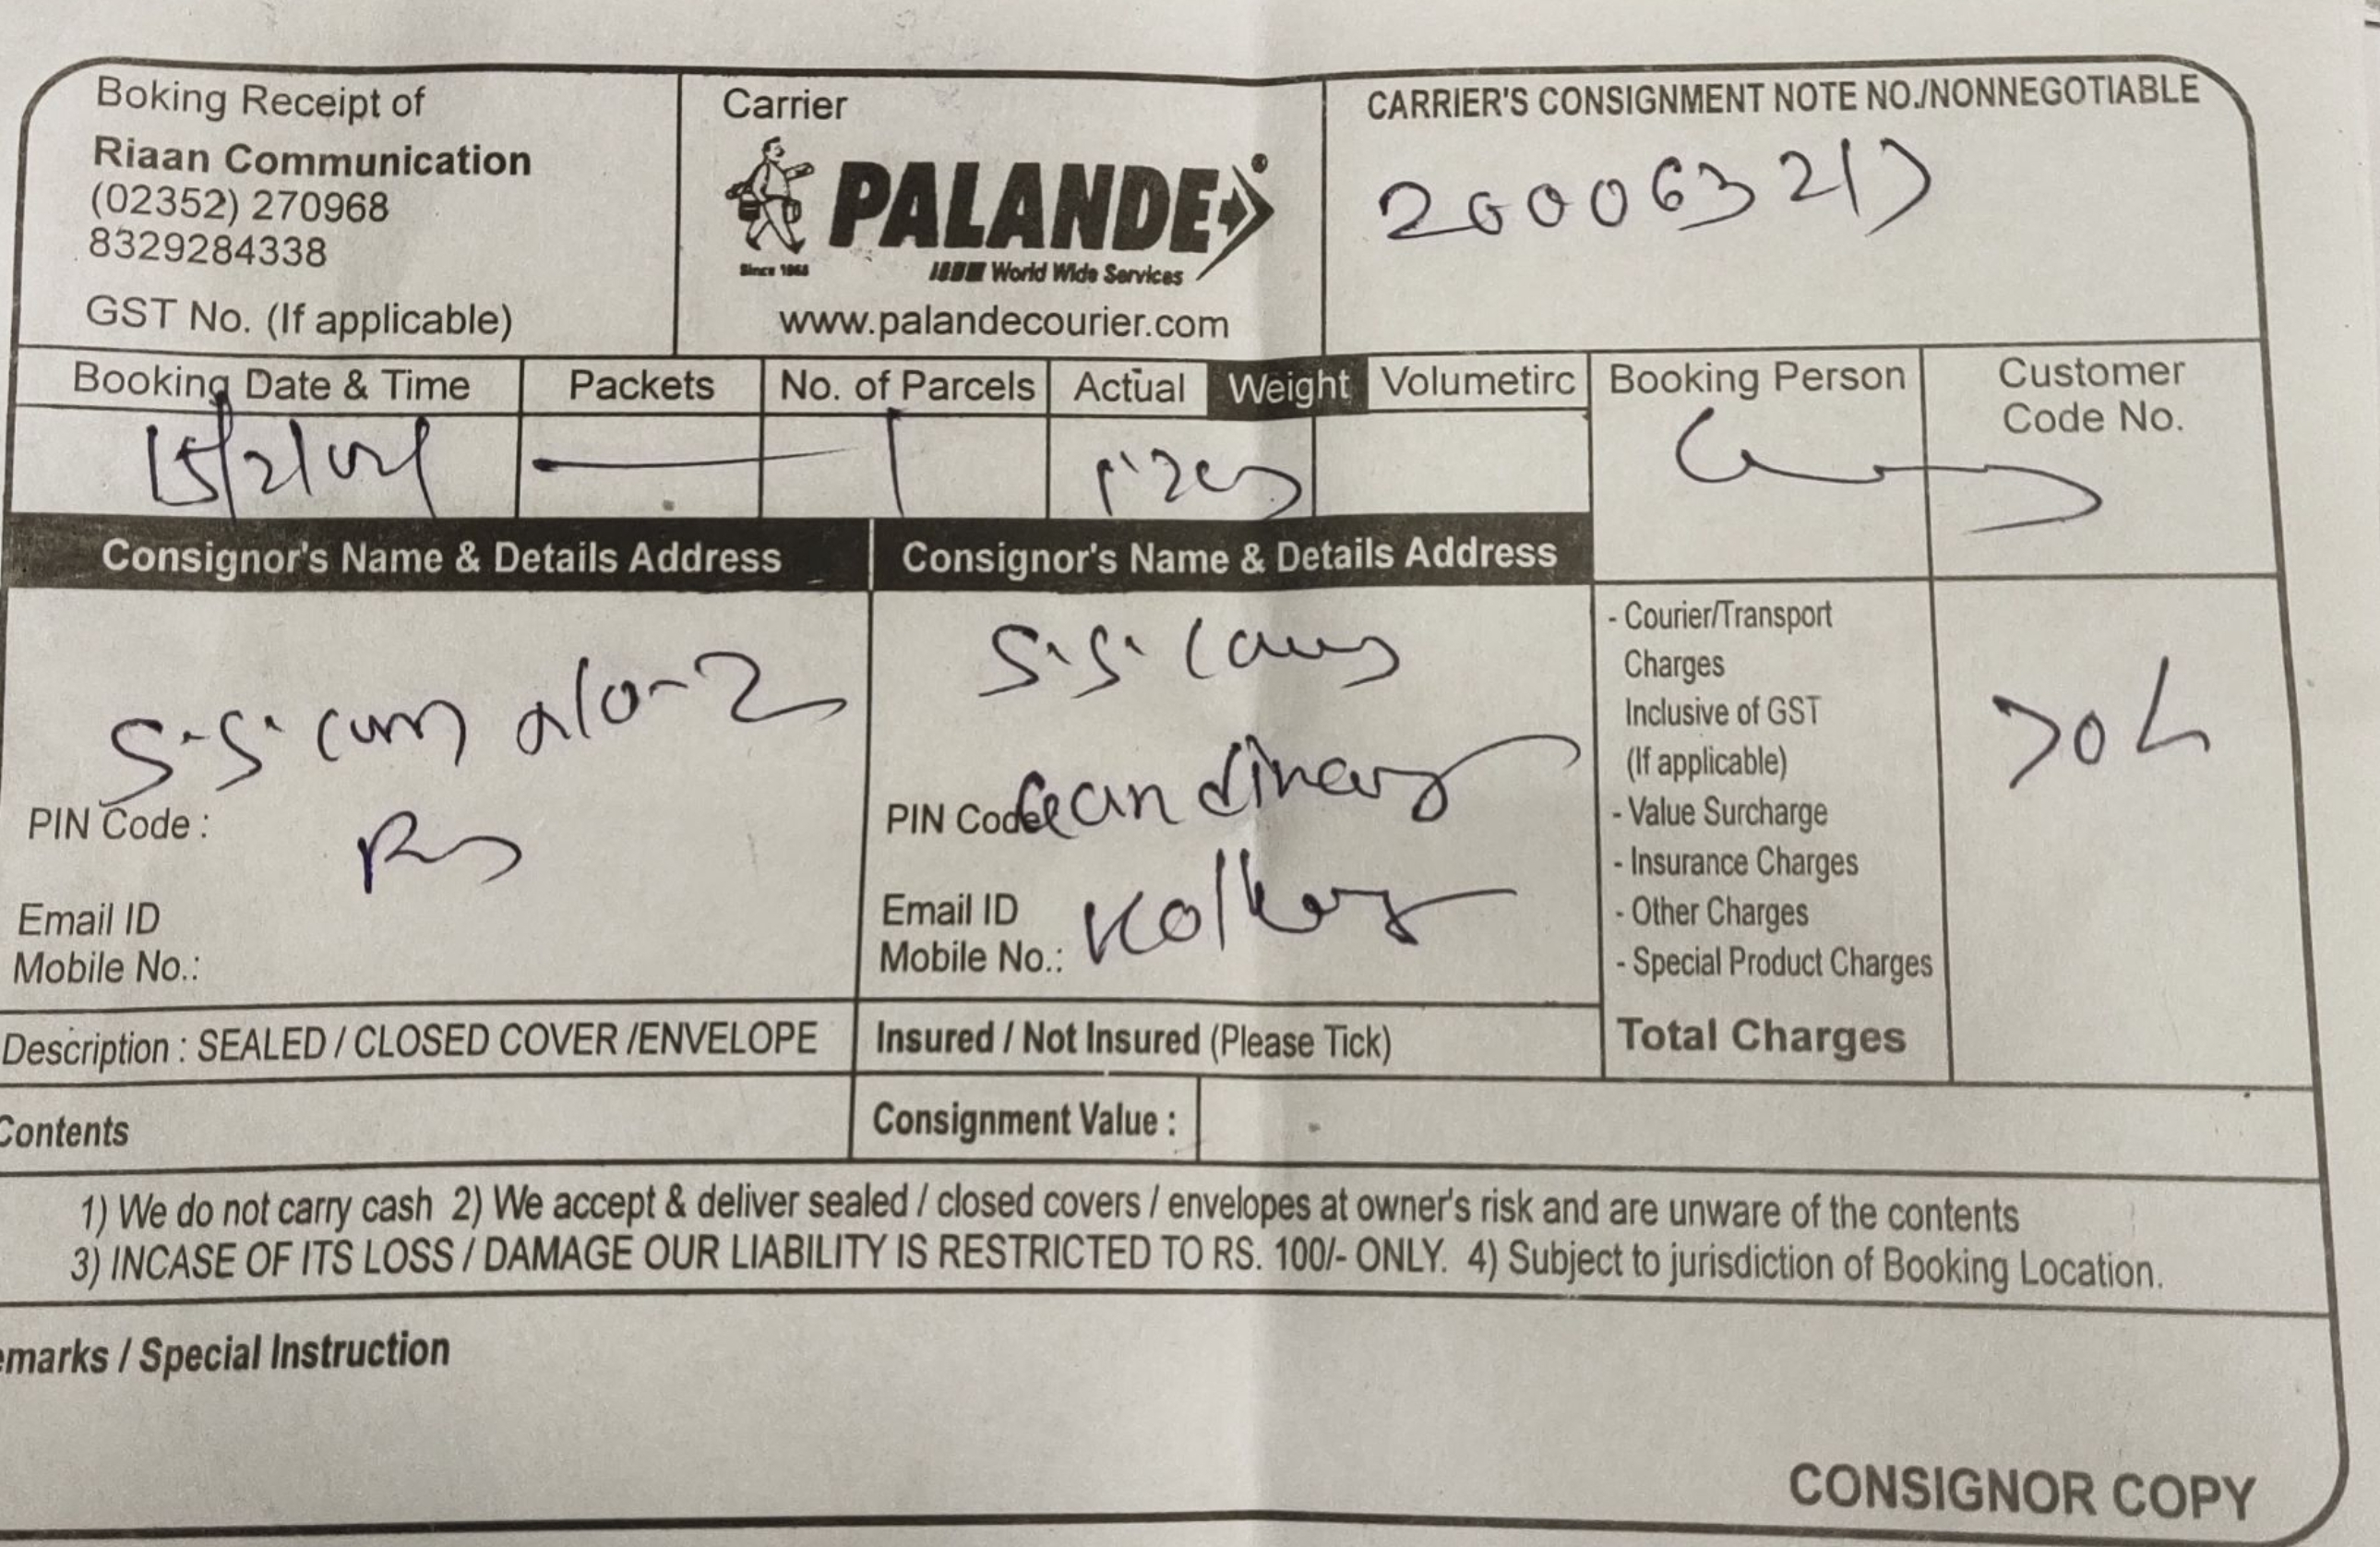 Boking Receipt of
Riaan Communication
(02352) 270968
8329284338
GST No. (If applicable)
Carrier
PALANDE
Since 1968
World Wide Services
www.palandecourier.com
CARRIER'S CONSIGNMENT NOTE NO./NONNEGOTIABLE
Booking Date & Time
Packets
No. of Parcels
Actual Weight Volumetirc
Booking Person
Customer
Code No.
1
Consignor's Name & Details Address
Consignor's Name & Details Address
S.S.
PIN Code :
Email ID
Mobile No.:
S.S.
PIN Code
Email ID
Mobile No.:
- Courier/Transport
Charges
Inclusive of GST
(If applicable)
- Value Surcharge
- Insurance Charges
- Other Charges
- Special Product Charges
Total Charges
Description : SEALED / CLOSED COVER /ENVELOPE
Insured / Not Insured (Please Tick)
Contents
Consignment Value :
1) We do not carry cash 2) We accept & deliver sealed / closed covers / envelopes at owner's risk and are unware of the contents
3) INCASE OF ITS LOSS / DAMAGE OUR LIABILITY IS RESTRICTED TO RS. 100/- ONLY. 4) Subject to jurisdiction of Booking Location.
emarks / Special Instruction
CONSIGNOR COPY